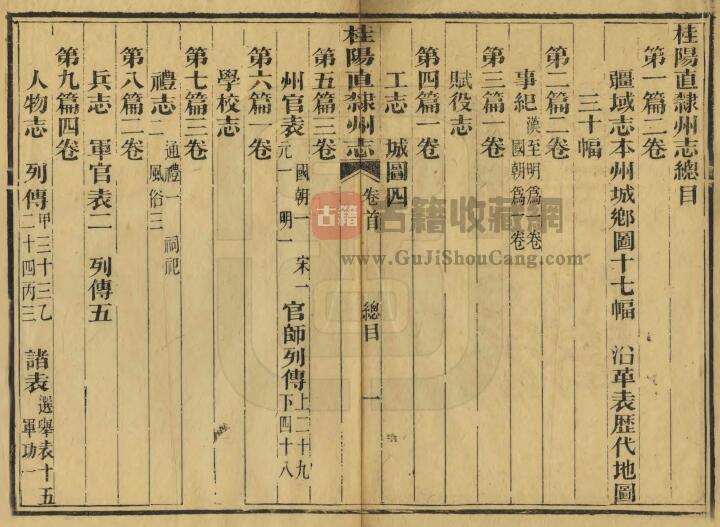 桂陽直隸州志總目
第一篇二卷
疆域志本州城鄉圖十七幅 沿革表歷代地圖
三十幅
第二篇二卷
事紀 漢至明爲一卷 國朝爲一卷
第三篇一卷
賦役志
第四篇一卷
工志 城圖四
桂陽直隸州志 卷首 總目 一
第五篇三卷
州官表 國朝一 宋一 元一 明一 官師列傳 上二十九 下四十八
第六篇一卷
學校志
第七篇三卷
禮志一 通禮一 祠祀 風俗三
第八篇二卷
兵志一 軍官表二 列傳五
第九篇四卷
人物志 列傳 甲三十三乙 二十四丙三 諸表 選舉表十五 軍功一
古籍
古籍收藏網
www.GuJiShouCang.com